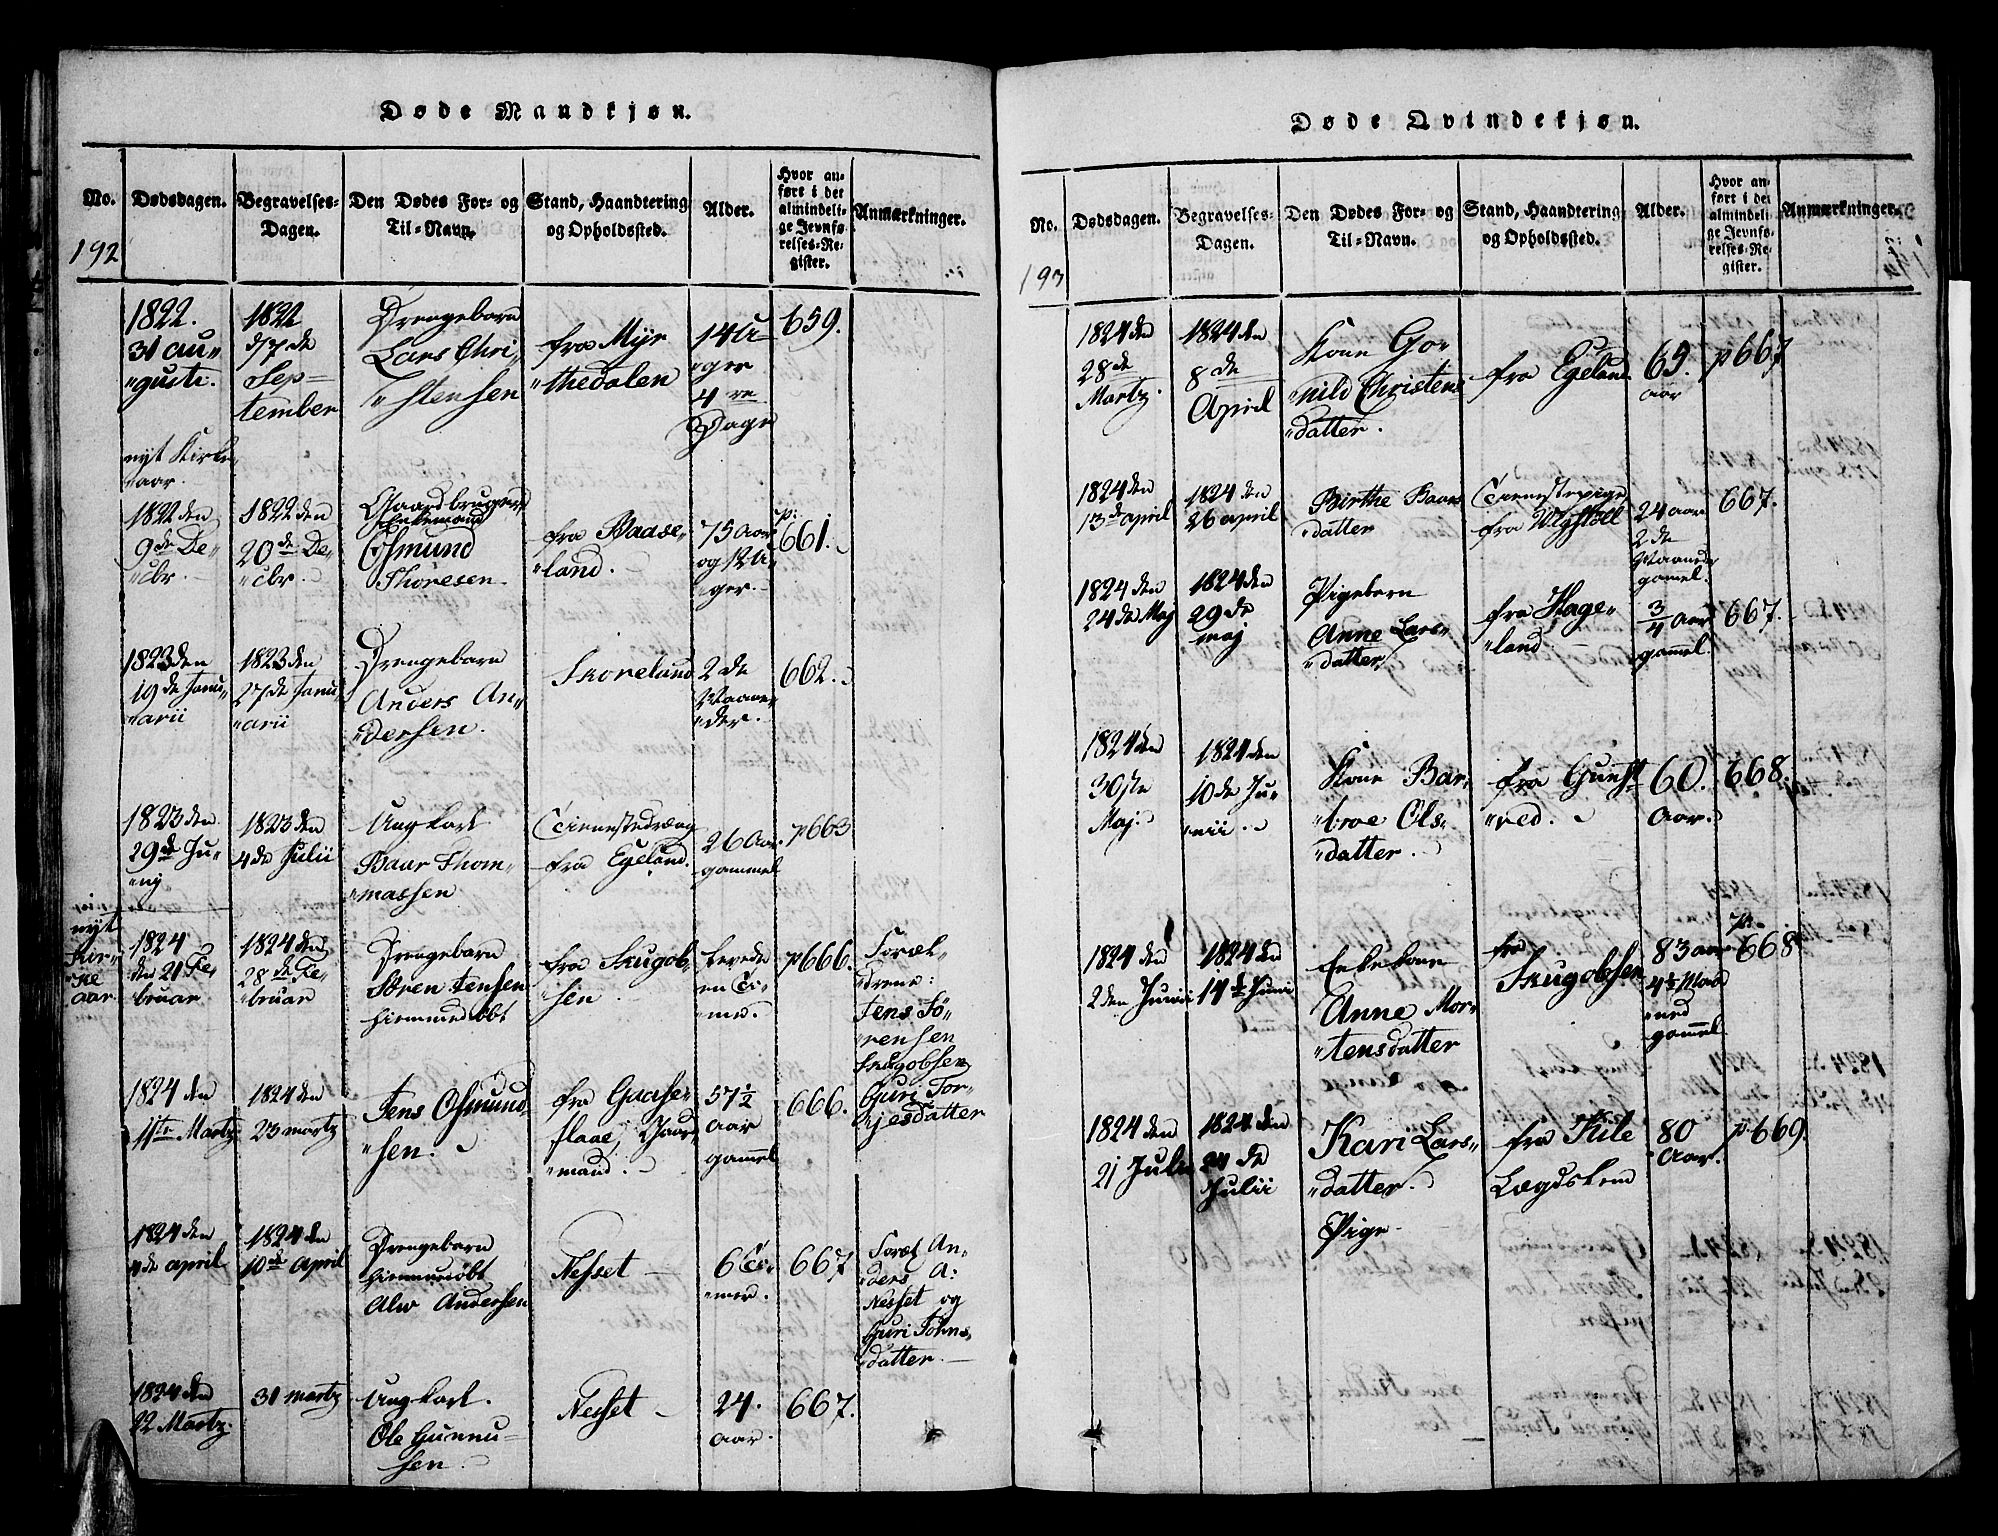 Døde Mandkjøn.
No.
Dødsdagen.
Begravelses-
Dagen.
Den Dødes For- og
Til-Navn.
Stand, Haandtering
og Opholdsted.
Alder.
Hvor an-
ført i det
almindeli-
ge Jevnfø-
relses-Re-
gister.
Anmærkninger.
192
1822.
31 au„
„gusti.
1822
d/7 de
Sep=
tember
Drengebarn
Lars Chri„
„stensen
fra Myr
„thedalen
14 U„
„ger
4 re
Dage
659.
nyt Kirke„
„aar.
1822 den
9de De„
„cbr.
1822 den
20 de De„
„cbr.
Gaardbruger
Enkemand
Osmund
Thoresen
fra Baase„
„land.
75 Aar
og 12 U„
„ger.
p:
661.
1823 den
19 de Janu„
„arii
1823 den
27 de Janu„
„arii
Drengebarn
Anders An„
„dersen.
Skoreland
2 de
Maane„
„der.
662.
1823 den
29 de Ju„
„nj
1823 den
4 de Julii
Ung karl
Baar Thom„
„massen
Tienestedræng
fra Egeland.
26 Aar.
gammel
p663
nyt
Kir„
„ke
aar
1824
den 21 Fe„
bruar
1824 den
28 de Fe„
„bruar
Drengebarn
Søren Jensen
hiemmedøbt
fra Skugob„
„sen
levede
en Ti„
„me.
p666.
Foræl„
„drene:
Jens Sø„
„rensen
Skugobsen
Guri Tor„
„jesdatter
1824 den
11te Martz
1824 den
23 martz
Jens Osmund„
„sen.
fra Gaase„
flaae, Gaar„
„mand.
57 1/2
aar
gammel
666.
1824 den
4 de april
1824 den
10 de April
Drengebarn
hiemmedøbt
Alw Andersen
Nesset
6 Ti„
„mer.
667
Foræl An„
„ders A:
Nesset og
Guri Johns„
„datter.
1824 den
22 Martz.
31 martz
Ung karl.
Ole Gunnu„
„sen.
Nesset
24.
aar.
667.
Døde Qvindekjøn.
No.
Dødsdagen.
Begravelses-
Dagen.
Den Dødes For- og
Til-Navn.
Stand, Haandtering
og Opholdsted.
Alder.
Hvor an-
ført i det
almindeli-
ge Jevnfø-
relses-Re-
gister.
Anmærkninger.
193
1824 den
28 de
Martz.
1824 den
8 de
April
Kone Go„
„nild Christens
„datter.
fra Egeland
69.
aar
p667
1824 den
13 de april
1824 den
26 april
Birthe Baars
„datter
Tienestepige
fra Vegstøl
24 aar
2 de
Maaneder
gamel.
667.
1824 den
24 de Maj
1824 den
29 de
maj
Pigebarn
Anne Lars„
„datter
fra Hage„
„land
3/4 aar
gammel
667.
1824 den
30 ste
Maj.
1824 den
10 de Ju„
„nii
Kone Bar„
„broe Ols„
„datter.
fra Guest„
„red.
60.
aar.
668.
1824 den
2 den Junii
1824 den
14 de Juni
Enkekone
Anne Mor„
„tensdatter
fra
Skugobsen
83 aar
4 1/2 Maa
„ned
gammel
p.
668
1824 den
21 Julii
1824 den
24 de
Julii
Kari Lars„
„datter.
Pige
fra Kile
Lægdslem
80
Aar.
p669.